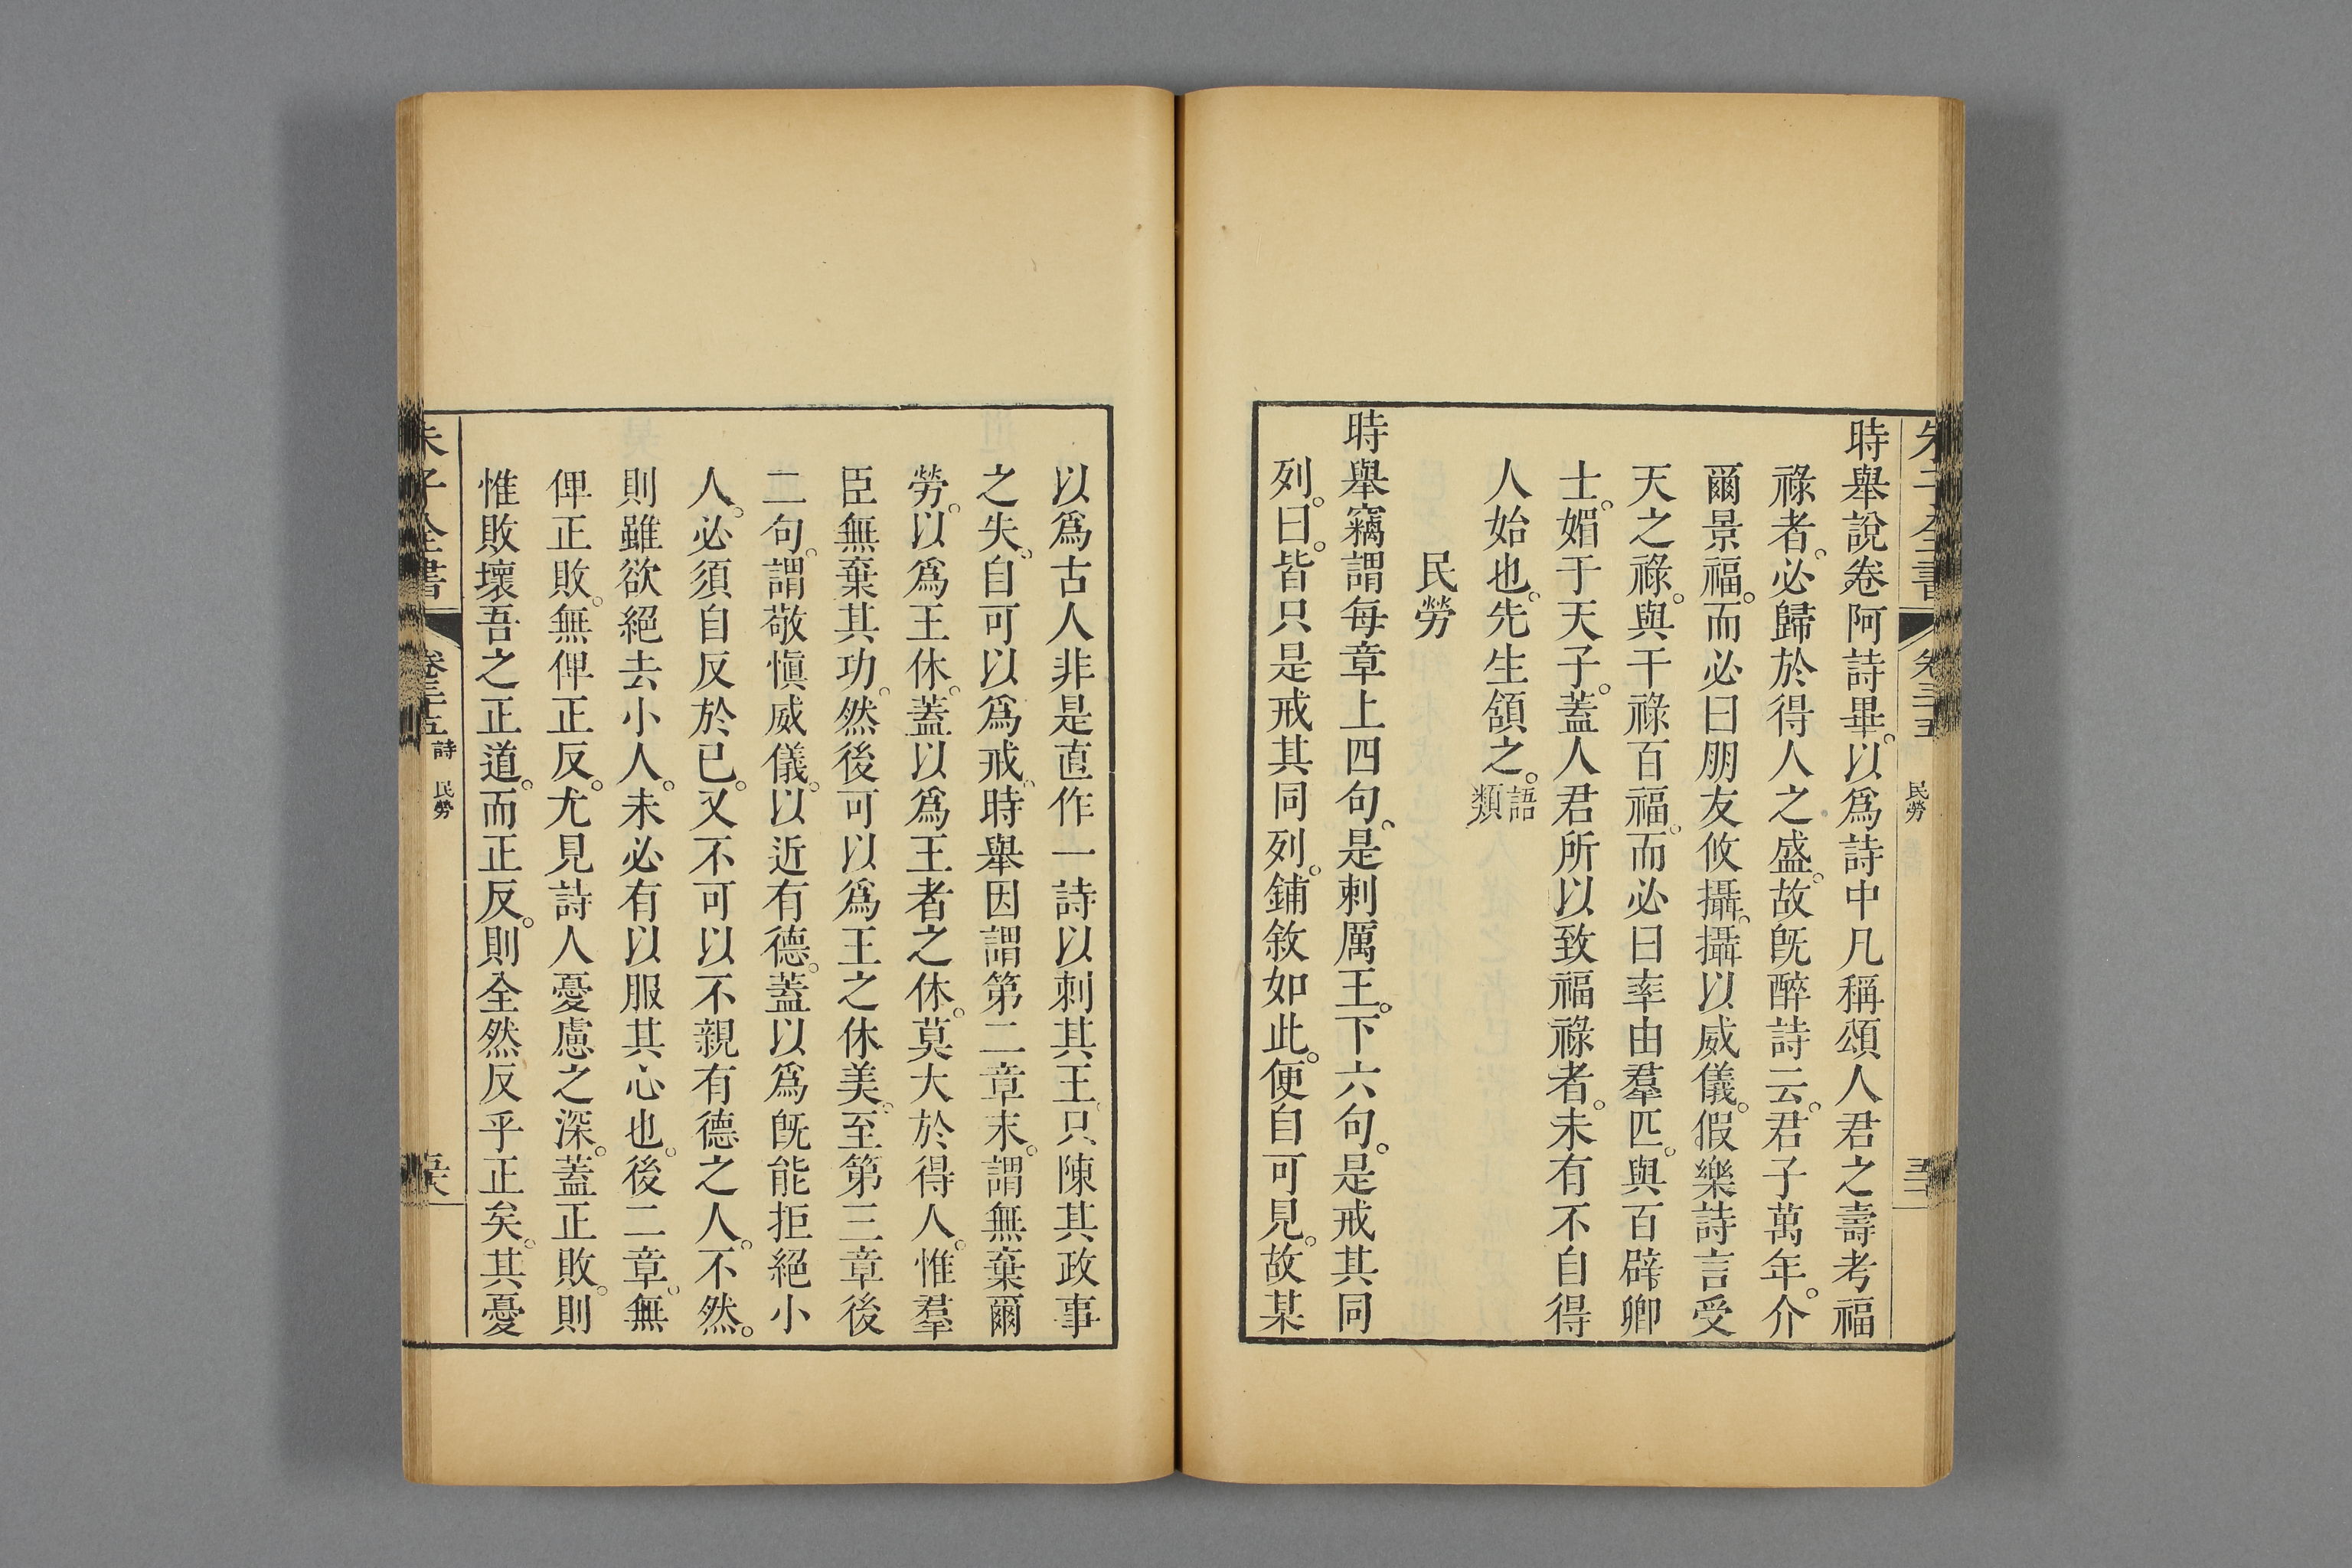 時舉說卷阿詩畢。以爲詩中凡稱頌人君之壽考福
祿者。必歸於得人之盛。故旣醉詩云。君子萬年。介
爾景福。而必曰朋友攸攝。攝以威儀。假樂詩言受
天之祿。與干祿百福。而必曰率由羣匹。與百辟卿
士。媚于天子。蓋人君所以致福祿者。未有不自得
人始也。先生頷之。語類
民勞
時舉竊謂每章上四句。是刺厲王。下六句。是戒其同
列。曰。皆只是戒其同列。鋪敘如此。便自可見。故某
以爲古人非是直作一詩以刺其王。只陳其政事
之失。自可以爲戒。時舉因謂第二章末。謂無棄爾
勞。以爲王休。蓋以爲王者之休。莫大於得人。惟羣
臣無棄其功。然後可以爲王之休美。至第三章後
二句。謂敬愼威儀。以近有德。蓋以爲旣能拒絕小
人。必須自反於己。又不可以不親有德之人。不然。
則雖欲絕去小人。未必有以服其心也。後二章。無
俾正敗。無俾正反。尤見詩人憂慮之深。蓋正敗。則
惟敗壞吾之正道。而正反。則全然反乎正矣。其憂
朱子全書
卷三十五
詩 民勞